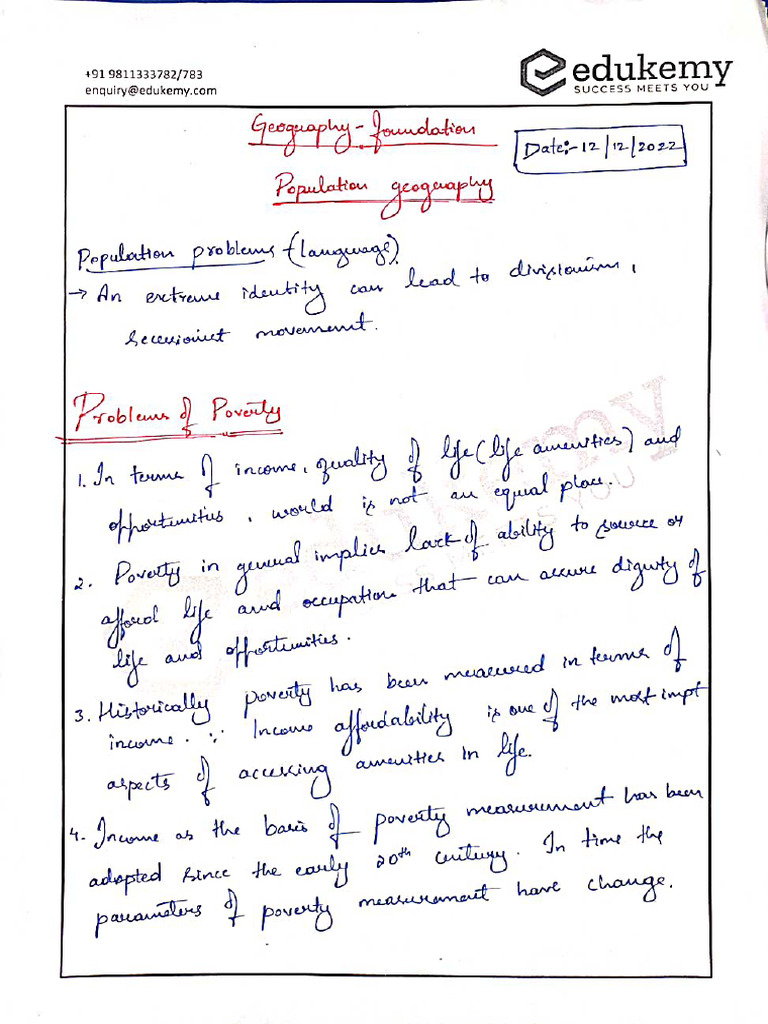 +91 9811333782/783
enquiry@edukemy.com
edukemy
SUCCESS MEETS YOU
Geography - foundation
Date:- 12/12/2022
Population geography
Population problems - (language).
→ An extreme identity can lead to divisionism,
secessionist movement.
Problems of Poverty
1. In terms of income, quality of life (life amenities) and
opportunities, world is not an equal place.
2. Poverty in general implies lack of ability to source or
afford life and occupation that can assure dignity of
life and opportunities.
3. Historically poverty has been measured in terms of
income. ∵ Income affordability is one of the most impt
aspects of accessing amenities in life.
4. Income as the basis of poverty measurement has been
adopted since the early 20th century. In time the
parameters of poverty measurement have change.